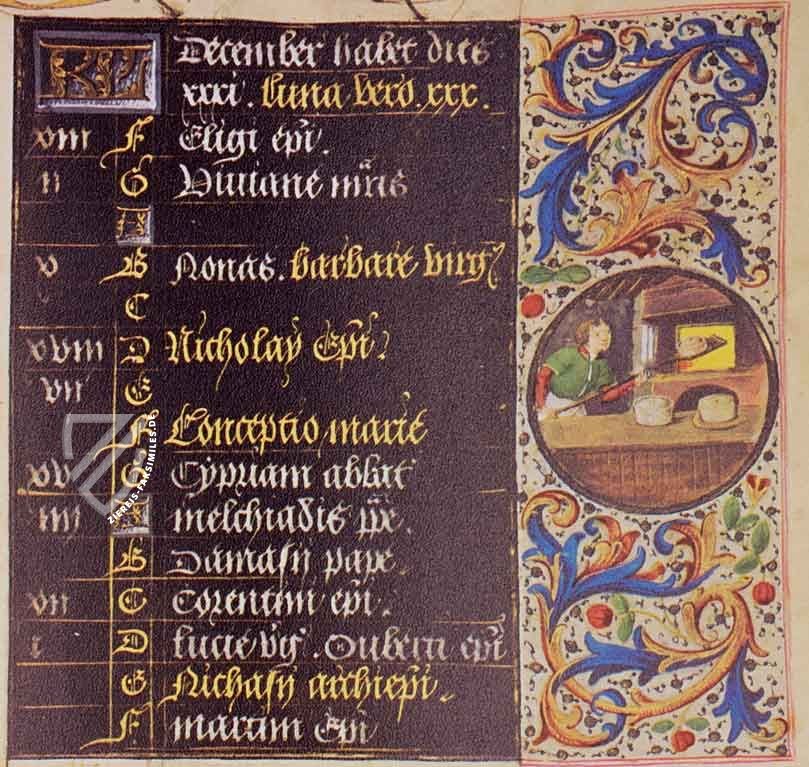 KL December habet dies
xxxi. Luna vero. xxx.
xviii F Eligi epi.
ii G Viviane mris
A
v B Nonas. barbare virg
C
xviii D Nicholay Epi
vii E
F Conceptio marie
xv G Cypriani abbat
iiii A melchiadis ppe.
B Damasy pape.
vii C Corentini epi.
i D Lucie vg. Auberti epi
E Nichasy archiepi.
F maxim Epi
ZIEREIS-FAKSIMILES.DE